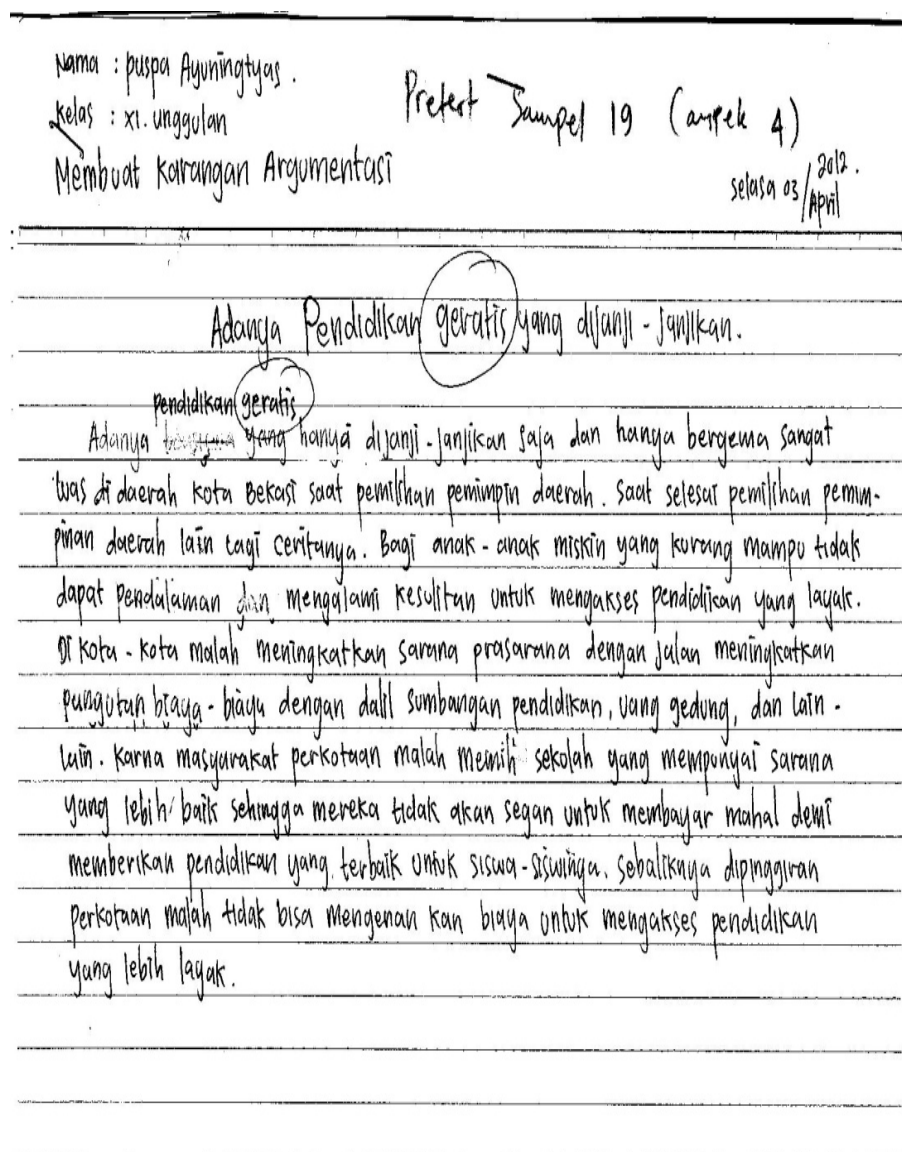 Nama : puspa Ayuningtyas.
Kelas : XI. unggulan
Pretest Sampel 19 (aspek 4)
Membuat Karangan Argumentasi
selasa 03/April 2012.
Adanya Pendidikan geratis yang dijanji-janjikan.
pendidikan geratis
Adanya yang hanya dijanji-janjikan saja dan hanya bergema sangat
luas di daerah kota Bekasi saat pemilihan pemimpin daerah. Saat selesai pemilihan pemim-
pinan daerah lain lagi ceritanya. Bagi anak-anak miskin yang kurang mampu tidak
dapat pendalaman dan mengalami kesulitan untuk mengakses pendidikan yang layak.
Di kota-kota malah meningkatkan sarana prasarana dengan jalan meningkatkan
pungutan biaya-biaya dengan dalil sumbangan pendidikan, uang gedung, dan lain-
lain. Karna masyarakat perkotaan malah memilih sekolah yang mempunyai sarana
yang lebih baik sehingga mereka tidak akan segan untuk membayar mahal demi
memberikan pendidikan yang terbaik untuk siswa-siswinya. sebaliknya dipinggiran
perkotaan malah tidak bisa mengenan kan biaya untuk mengakses pendidikan
yang lebih layak.